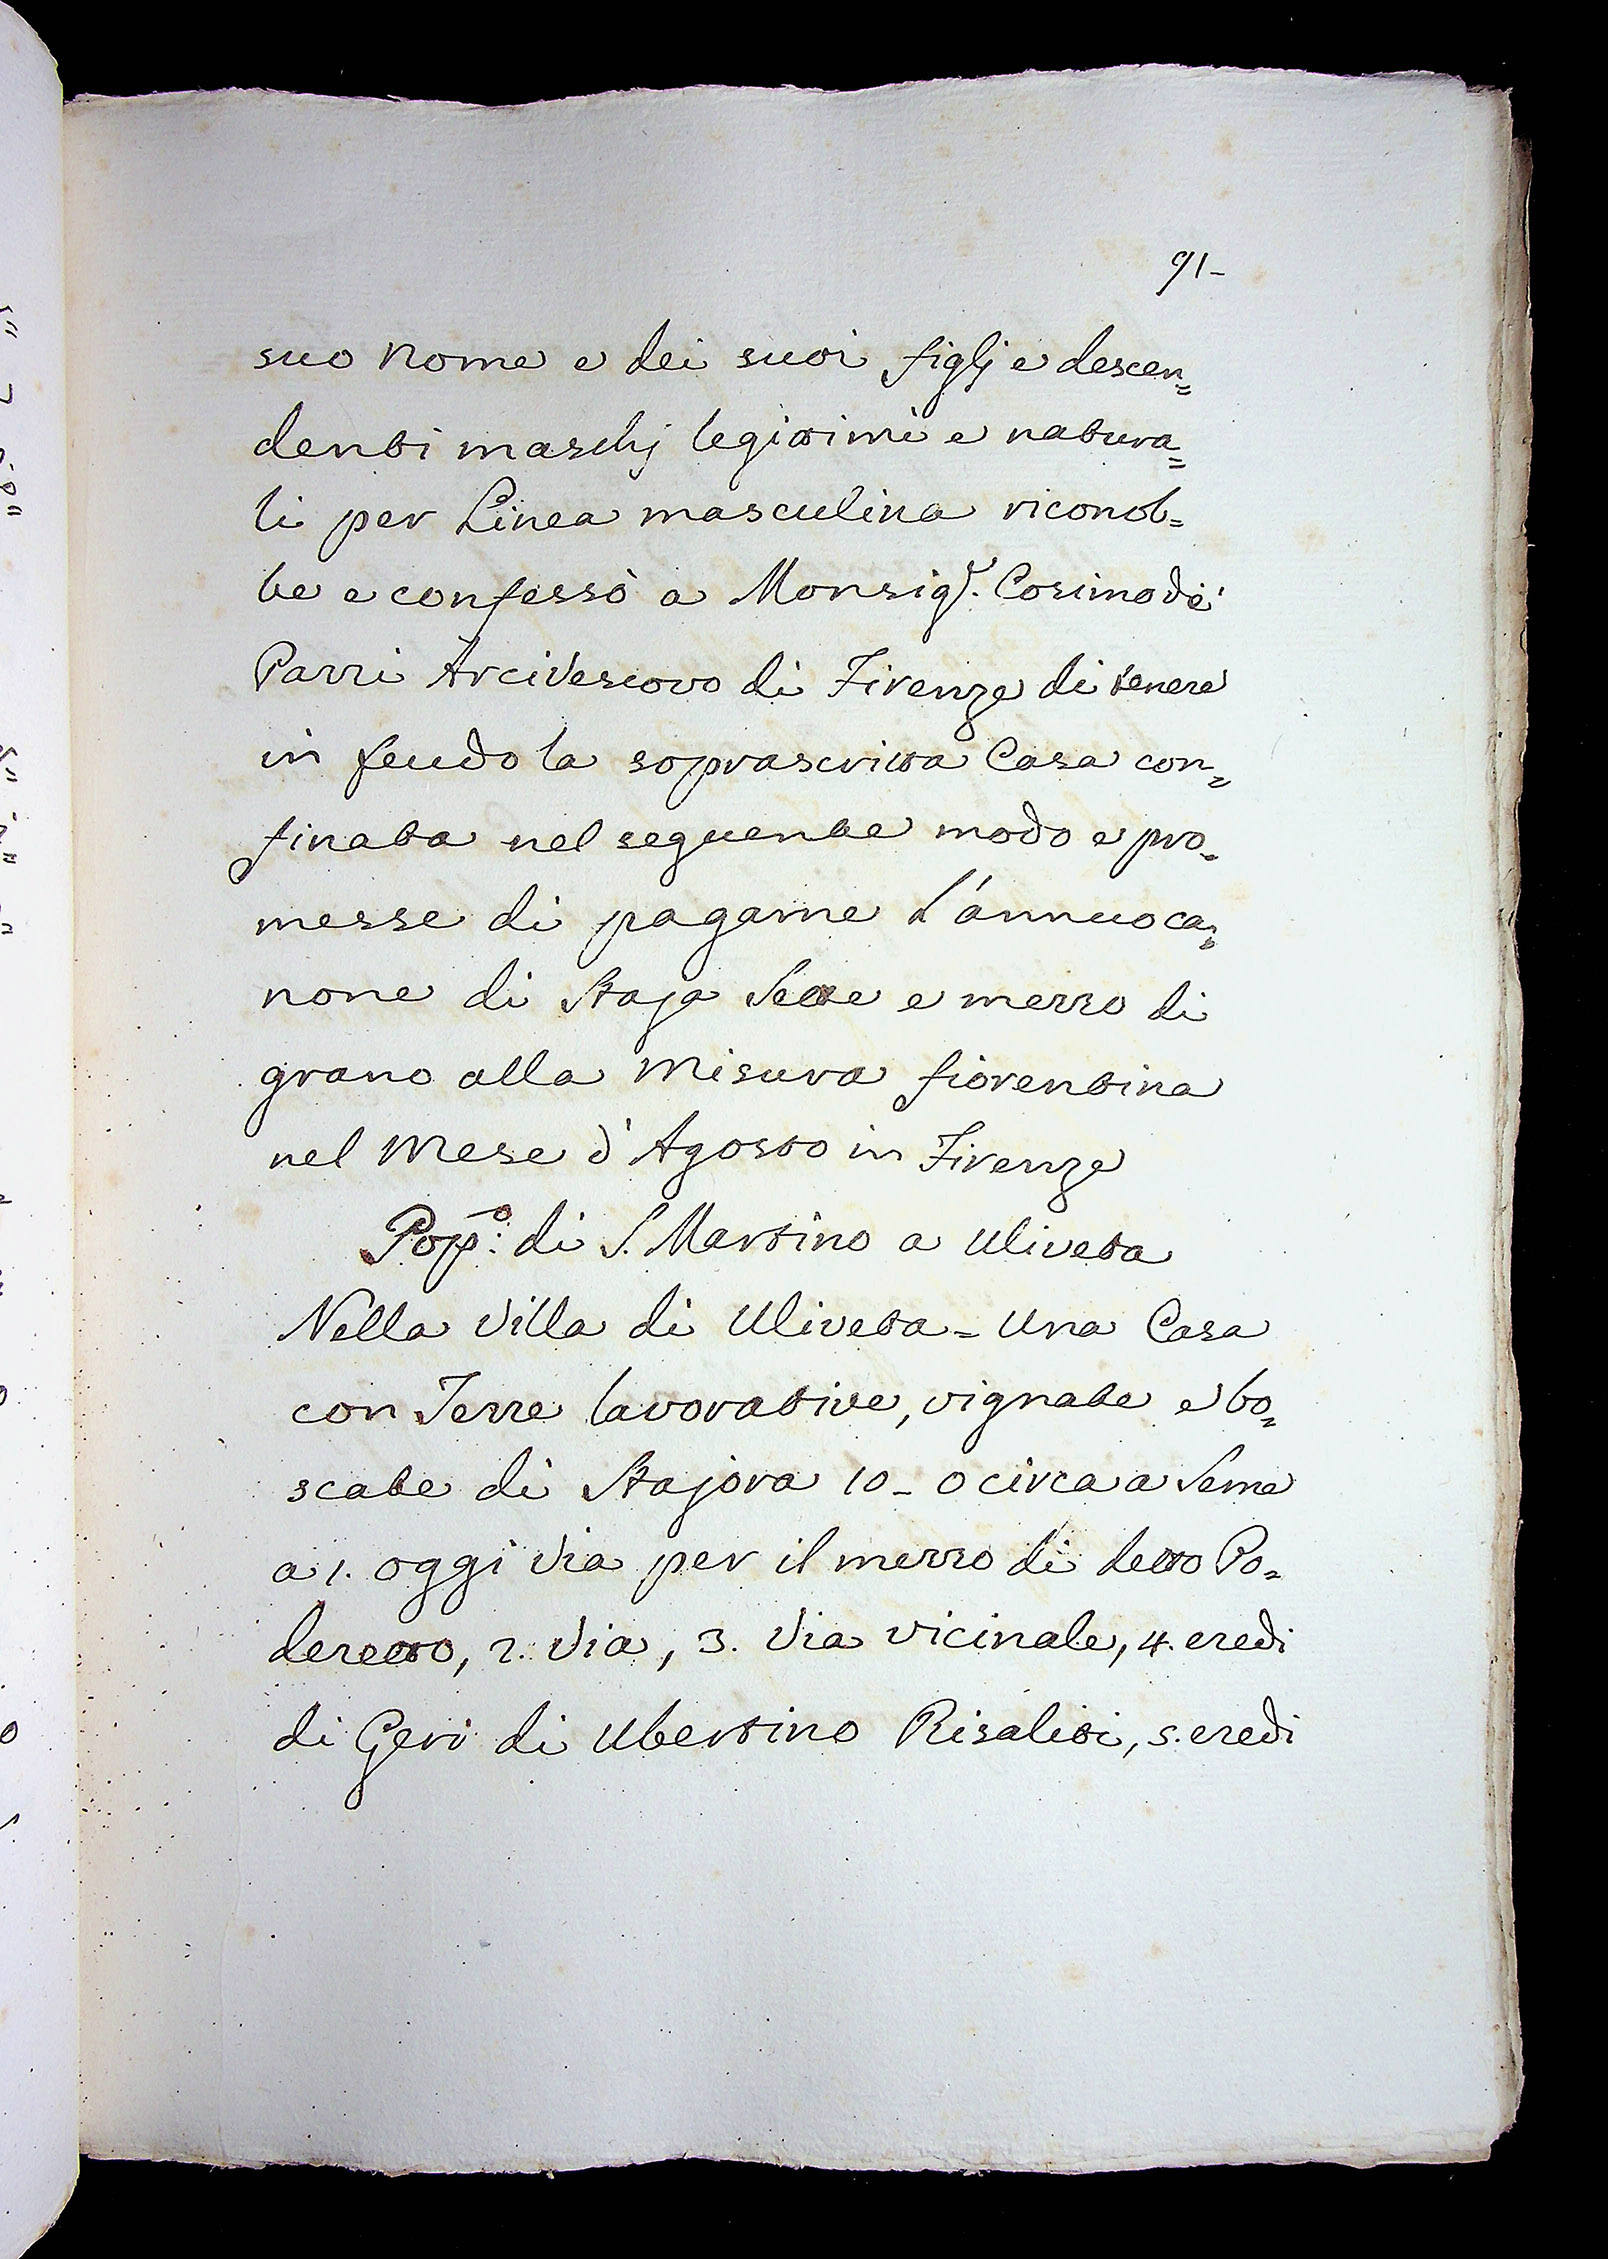 91-
suo nome e dei suoi figlj e descen=
denti maschj legittimi e natura=
li per Linea masculina riconob=
be e confessò a Monsigr. Cosimo de'
Pazzi Arcivescovo di Firenze di tenere
in feudo la soprascritta Casa con=
finata nel seguente modo e pro=
messe di pagarne l'annuo ca=
none di Staja Sette e mezzo di
grano alla misura fiorentina
nel Mese d'Agosto in Firenze
Popo: di S. Martino a Uliveta
Nella Villa di Uliveta = Una Casa
con Terre lavorative, vignate e bo=
scate di Stajora 10 - 0 circa a Seme
a 1. oggi Via per il mezzo di detto Po=
deretto, 2. Via, 3. Via vicinale, 4. eredi
di Geri di Ubertino Risaliti, 5. eredi